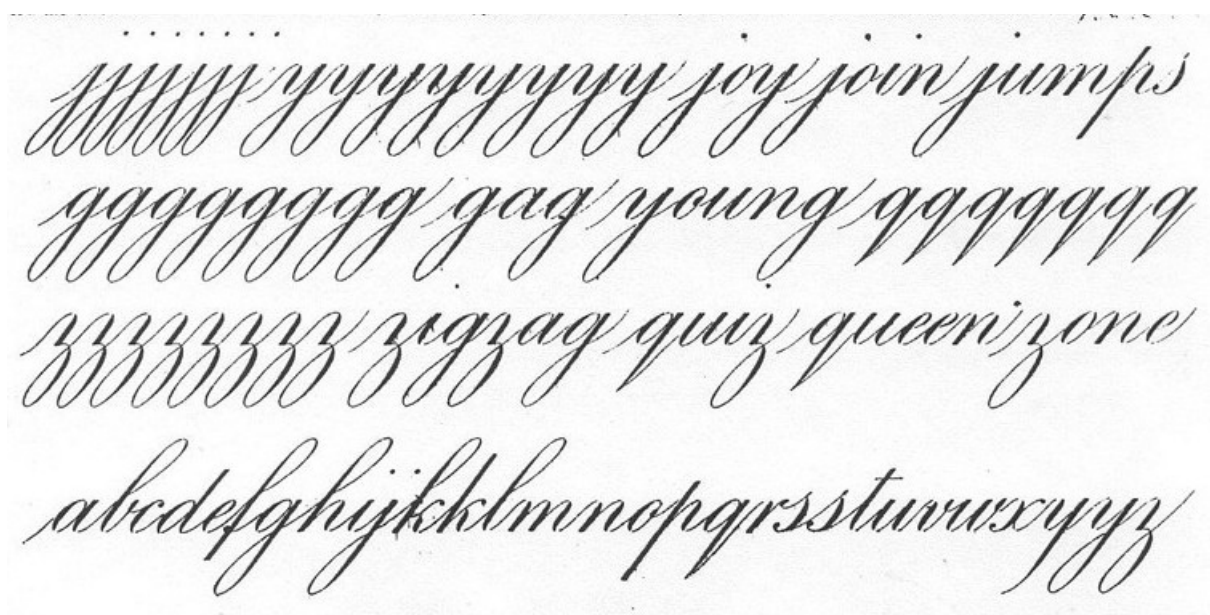 jjjjjjj yyyyyyyy joy join jumps
gggggggg gag young qqqqqqq
zzzzzzzz zigzag quiz queen zone
abcdefghijkklmnopqrsstuvwxyyz